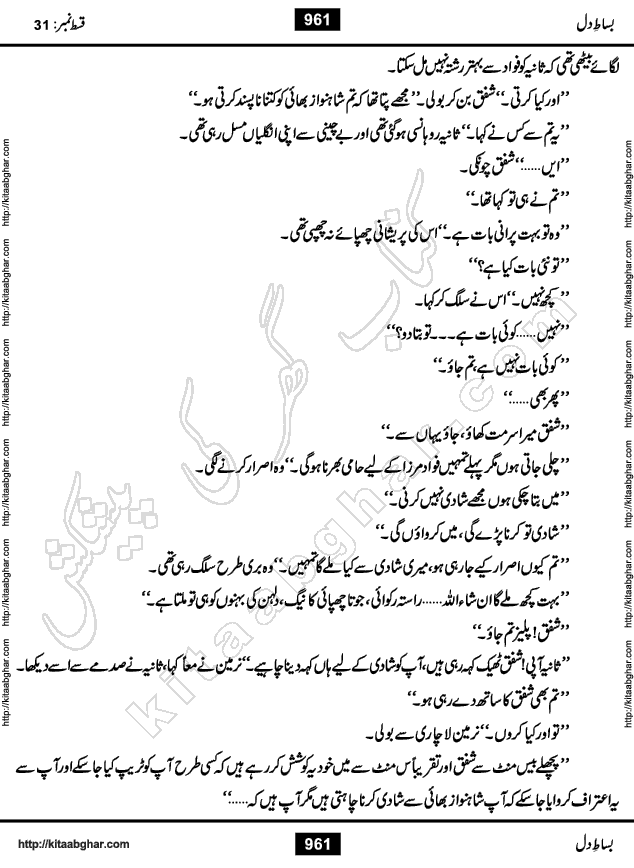 بساطِ دل 961 قسط نمبر: 31
لگائے بیٹھی تھی کہ ثانیہ کو فواد سے بہتر رشتہ نہیں مل سکتا۔
’’اور کیا کرتی۔‘‘ شفق بن کر بولی۔ ’’مجھے پتا تھا کہ تم شاہنواز بھائی کو کتنا ناپسند کرتی ہو۔‘‘
’’یہ تم سے کس نے کہا۔‘‘ ثانیہ روہانسی ہو گئی تھی اور بے چینی سے اپنی انگلیاں مسل رہی تھی۔
’’ایں......‘‘ شفق چونکی۔
’’تم نے ہی تو کہا تھا۔‘‘
’’وہ تو بہت پرانی بات ہے۔‘‘ اس کی پریشانی چھپائے نہ چھپی تھی۔
’’تو نئی بات کیا ہے؟‘‘
’’کچھ نہیں۔‘‘ اس نے سلگ کر کہا۔
’’نہیں......کوئی بات ہے۔۔۔ تو بتا دو؟‘‘
’’کوئی بات نہیں ہے، تم جاؤ۔‘‘
’’پھر بھی......‘‘
’’شفق میرا سر مت کھاؤ، جاؤ یہاں سے۔‘‘
’’چلی جاتی ہوں مگر پہلے تمہیں فواد مرزا کے لیے حامی بھرنا ہوگی۔‘‘ وہ اصرار کرنے لگی۔
’’میں بتا چکی ہوں مجھے شادی نہیں کرنی۔‘‘
’’شادی تو کرنا پڑے گی، میں کرواؤں گی۔‘‘
’’تم کیوں اصرار کیے جا رہی ہو، میری شادی سے کیا ملے گا تمہیں۔‘‘ وہ بری طرح سلگ رہی تھی۔
’’بہت کچھ ملے گا ان شاء اللہ......راستہ رکوائی، جوتا چھپائی کا نیگ، دلہن کی بہنوں کو ہی تو ملتا ہے۔‘‘
’’شفق! پلیز تم جاؤ۔‘‘
’’ثانیہ آپی! شفق ٹھیک کہہ رہی ہیں، آپ کو شادی کے لیے ہاں کہہ دینا چاہیے۔‘‘ نرمین نے معاً کہا، ثانیہ نے صدمے سے اسے دیکھا۔
’’تم بھی شفق کا ساتھ دے رہی ہو۔‘‘
’’تو اور کیا کروں۔‘‘ نرمین لاچاری سے بولی۔
’’پچھلے بیس منٹ سے شفق اور تقریباً دس منٹ سے میں خود یہ کوشش کر رہے ہیں کہ کسی طرح آپ کو ٹریپ کیا جا سکے اور آپ سے
یہ اعتراف کروایا جا سکے کہ آپ شاہنواز بھائی سے شادی کرنا چاہتی ہیں مگر آپ ہیں کہ......‘‘
کتاب گھر کی پیشکش
kitaabghar.com
http://kitaabghar.com http://kitaabghar.com http://kitaabghar.com http://kitaabghar.com http://kitaabghar.com http://kitaabghar.com
http://kitaabghar.com http://kitaabghar.com http://kitaabghar.com http://kitaabghar.com http://kitaabghar.com http://kitaabghar.com
بساطِ دل 961 http://kitaabghar.com